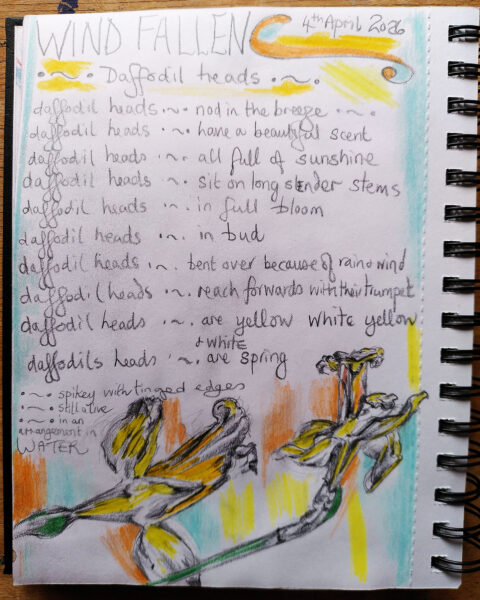 WIND FALLEN
4th April 2026
·~· Daffodil heads ·~·
daffodil heads ·~· nod in the breeze ·~·
daffodil heads ·~· have a beautiful scent
daffodil heads ·~· all full of sunshine
daffodil heads ·~· sit on long slender stems
daffodil heads ·~· in full bloom
daffodil heads ·~· in bud
daffodil heads ·~· bent over because of rain & wind
daffodil heads ·~· reach forwards with their trumpet
daffodil heads ·~· are yellow white yellow
& WHITE
daffodils heads ·~· are spring
·~·~· spikey with tinged edges
·~·~· still alive
·~·~· in an
arrangement in
WATER